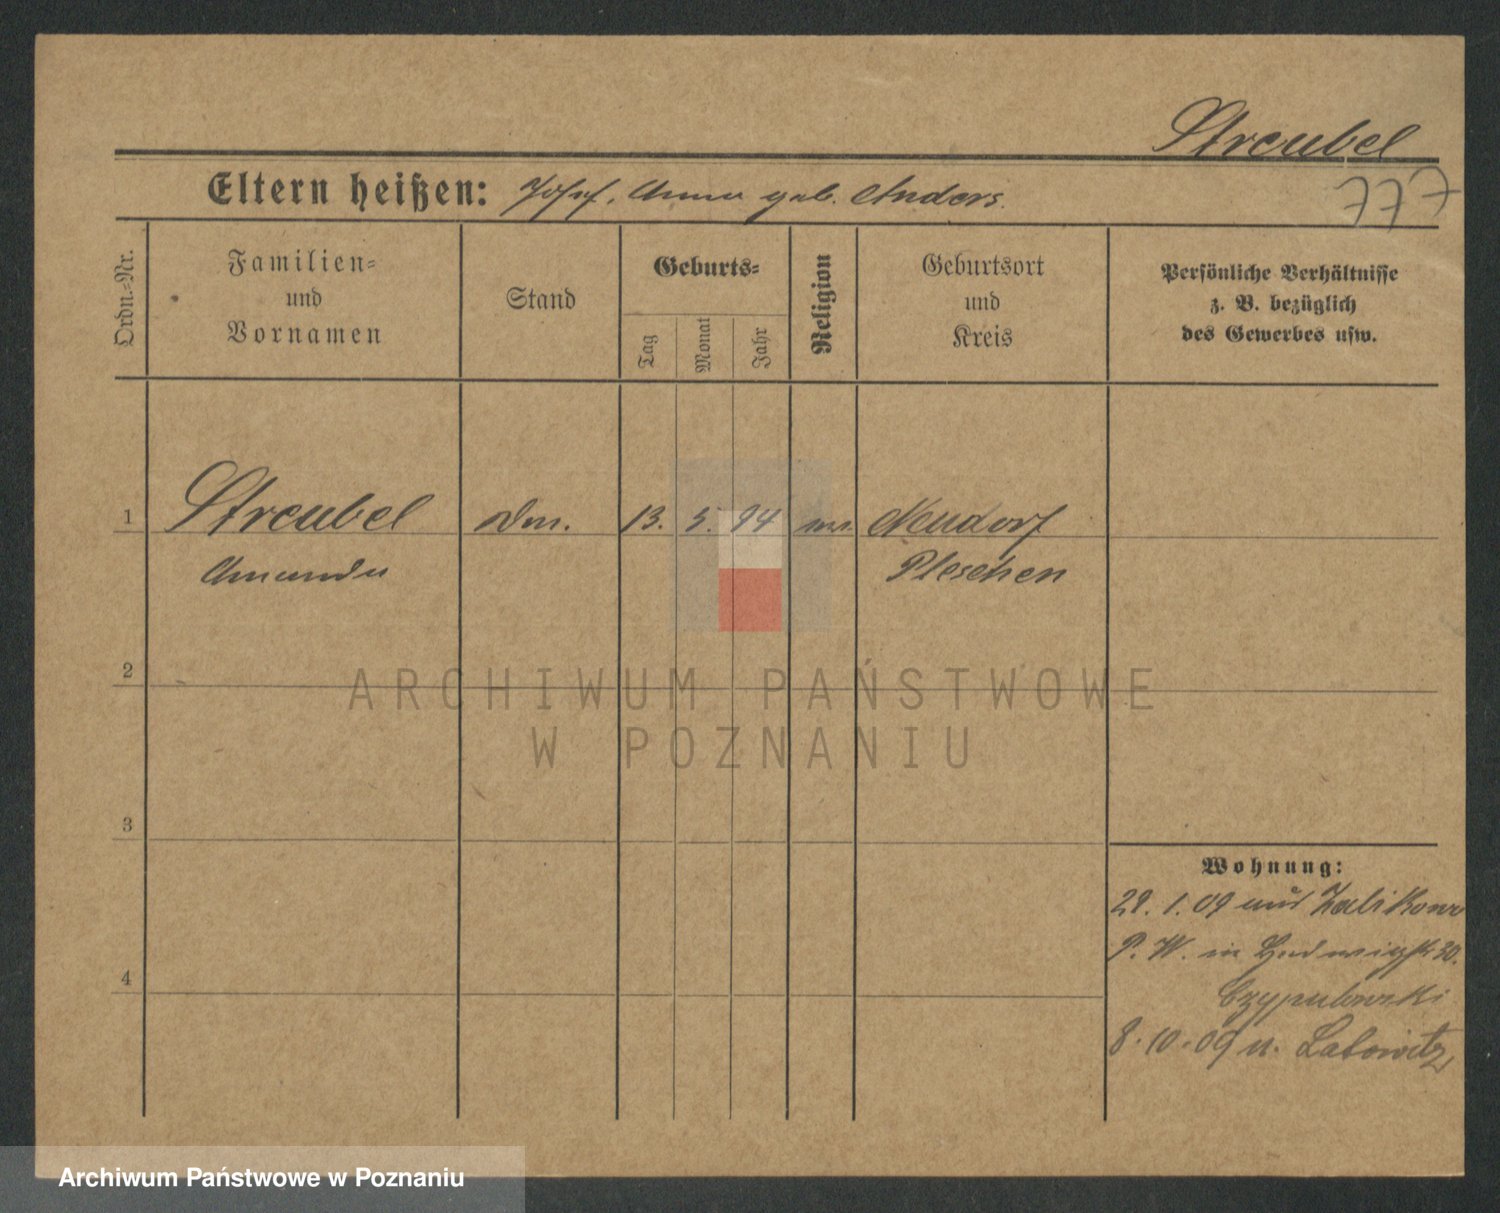 Streubel
Eltern heißen: Josef, Anna geb. Anders.
777
Ordn.-Nr.
Familien-
und
Vornamen
Stand
Geburts-
Tag
Monat
Jahr
Religion
Geburtsort
und
Kreis
Persönliche Verhältnisse
z. B. bezüglich
des Gewerbes usw.
1 Streubel 13. 5. 94 Neudorf
Amanda Pleschen
2
ARCHIWUM PAŃSTWOWE
W POZNANIU
3
4
Wohnung:
22. 1. 09
P. W. in 30.
8.10.09 n.
Archiwum Państwowe w Poznaniu